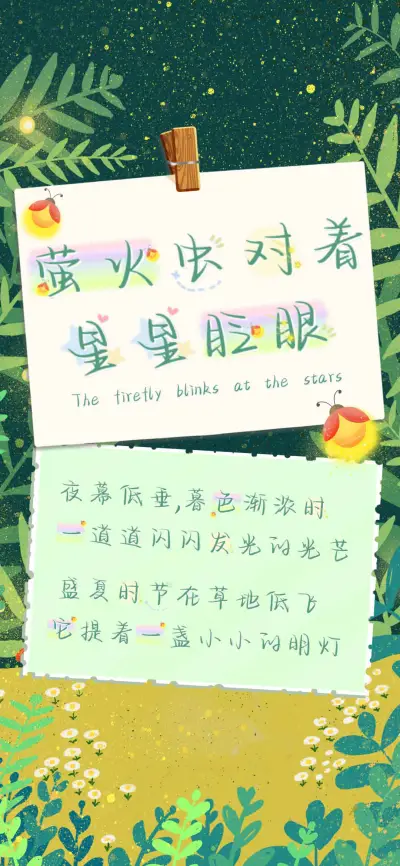 萤火虫对着
星星眨眼
The firefly blinks at the stars
夜幕低垂,暮色渐浓时
一道道闪闪发光的光芒
盛夏时节在草地低飞
它提着一盏小小的明灯